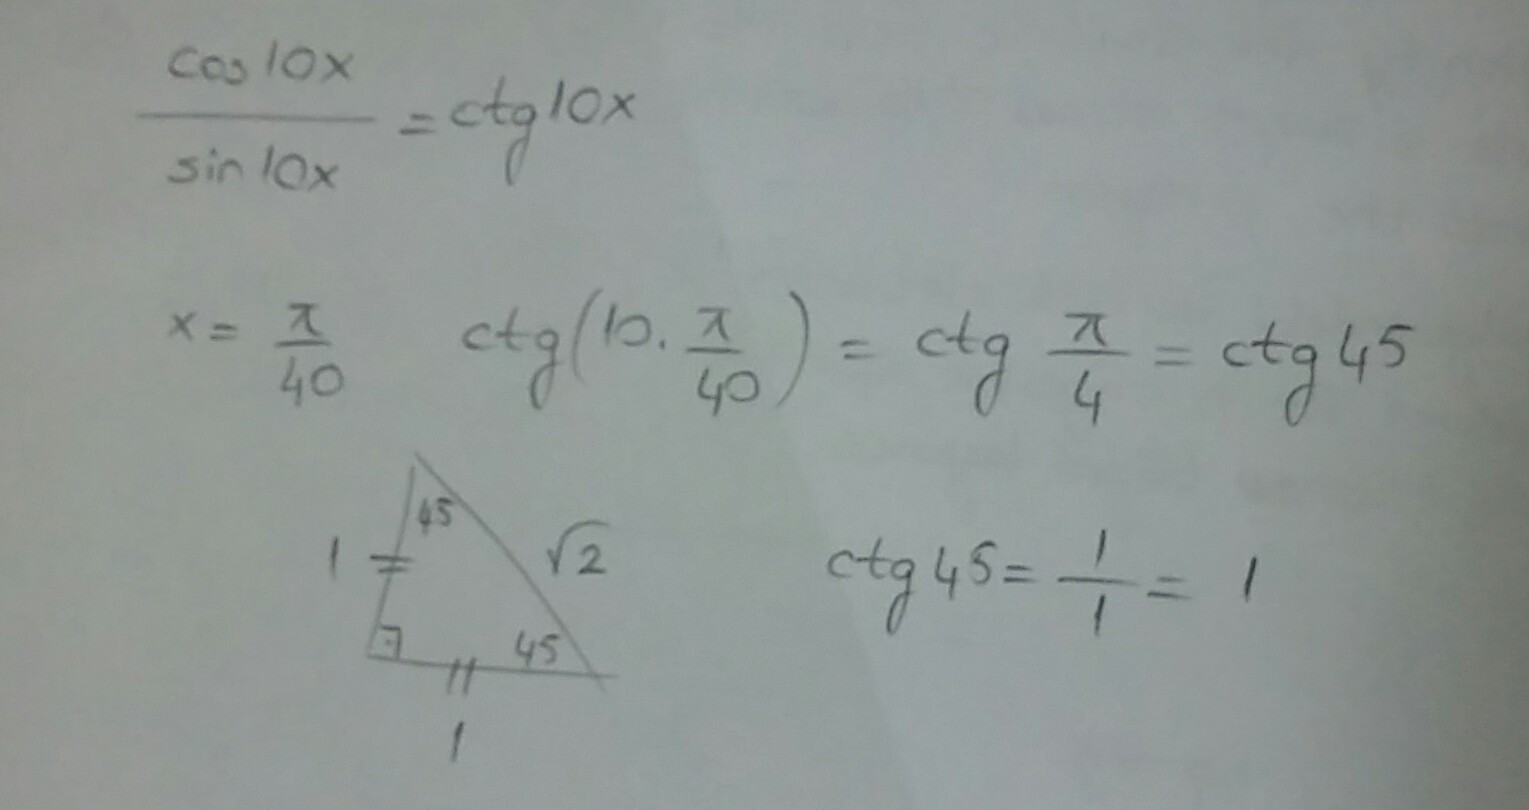 cos10x
/ sin10x = ctg10x
x = π/40 ctg(10.π/40) = ctg π/4 = ctg45
45
1 √2 ctg45 = 1/1 = 1
45
1